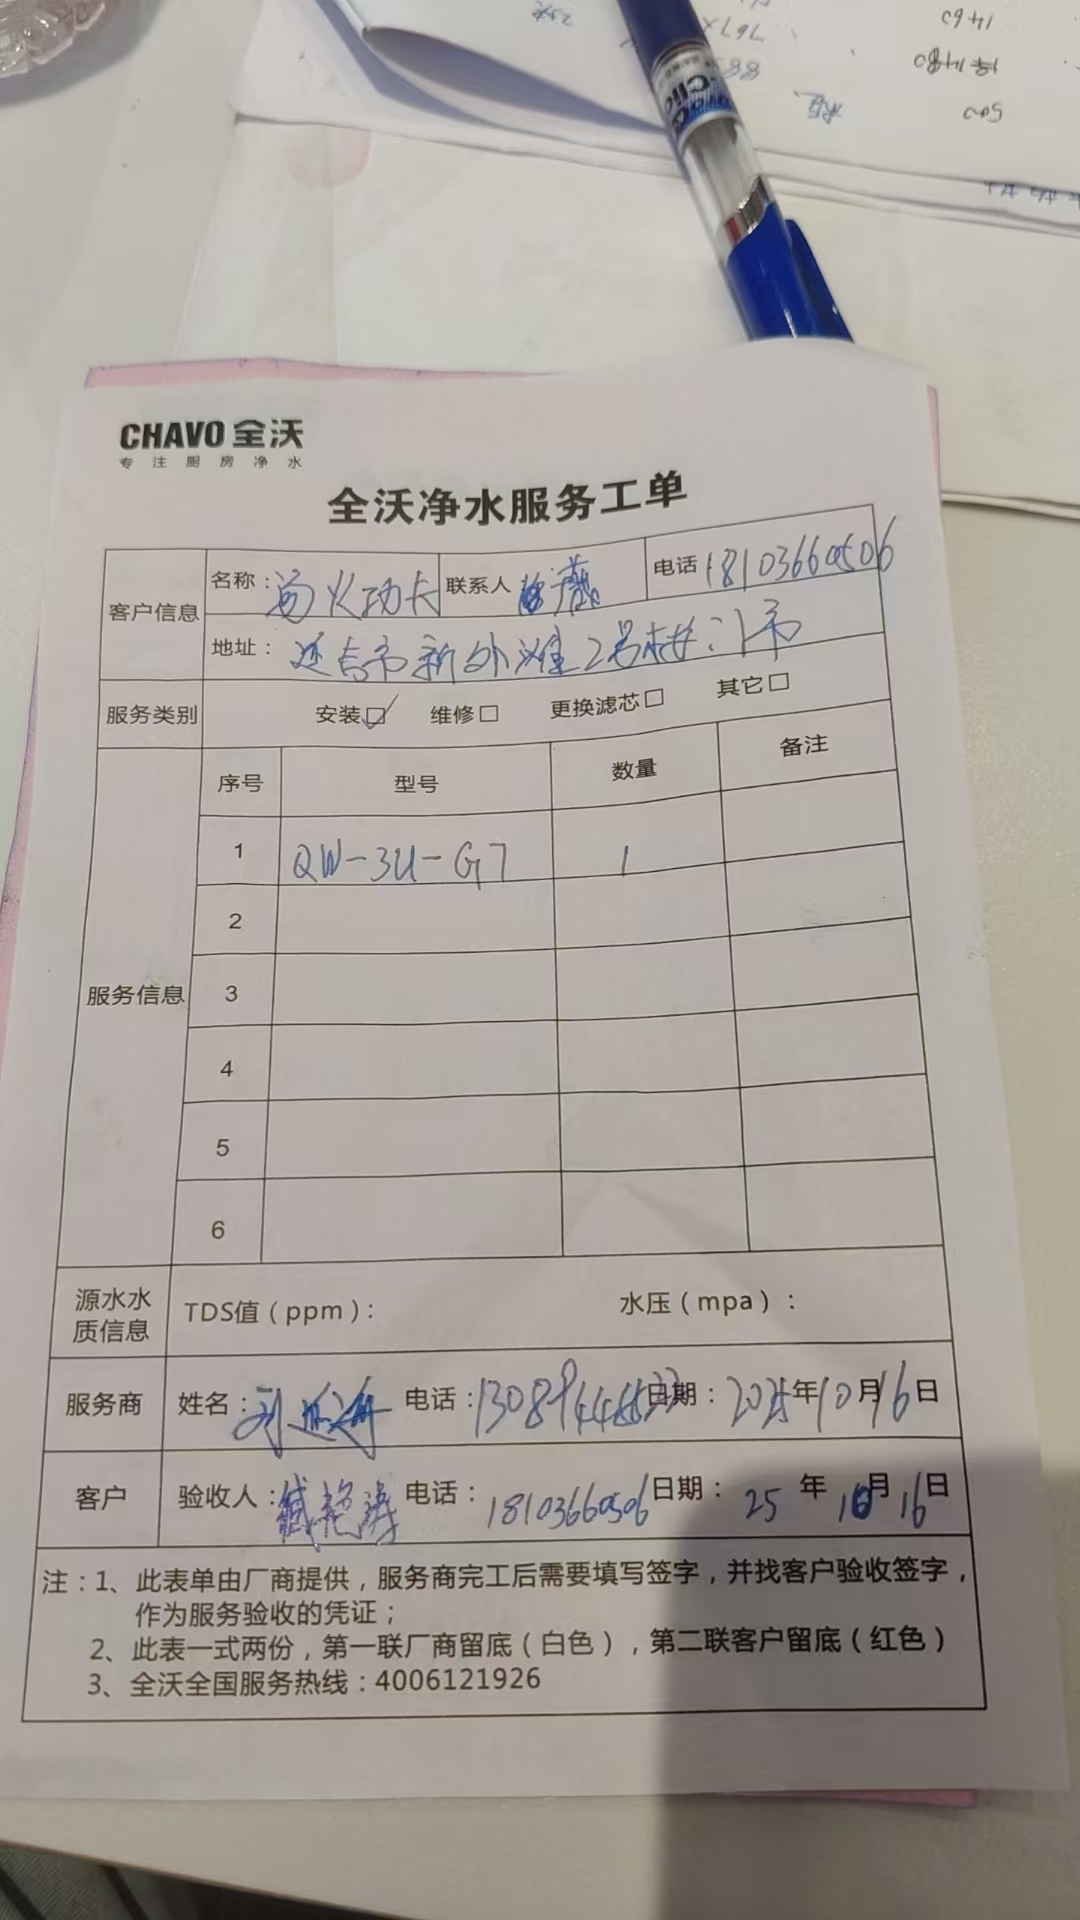 CHAVO 全沃
专注厨房净水
全沃净水服务工单
客户信息 名称：汤火功夫 联系人 电话 18103660506
地址：延吉市新外滩2号楼门市
服务类别 安装☑ 维修□ 更换滤芯□ 其它□
服务信息 序号 型号 数量 备注
1 QW-3U-G7 1
2
3
4
5
6
源水水质信息 TDS值（ppm）： 水压（mpa）：
服务商 姓名： 电话： 日期：2025年10月16日
客户 验收人：臧艳涛 电话：18103660506 日期：25 年 10月16日
注：1、此表单由厂商提供，服务商完工后需要填写签字，并找客户验收签字，
作为服务验收的凭证；
2、此表一式两份，第一联厂商留底（白色），第二联客户留底（红色）
3、全沃全国服务热线：4006121926